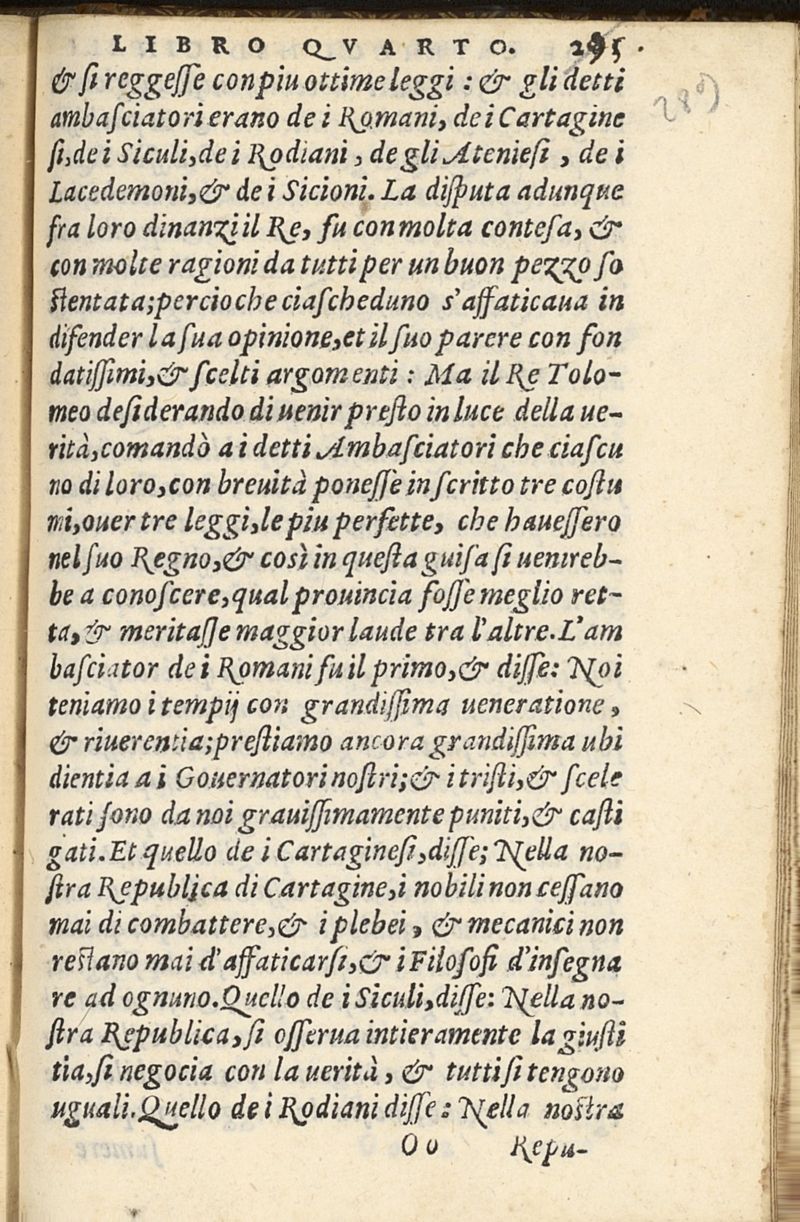 LIBRO QVARTO. 295.
289
& ſi reggeſſe con piu ottime leggi : & gli detti
ambaſciatori erano de i Romani, de i Cartagine
ſi, de i Siculi, de i Rodiani, de gli Atenieſi, de i
Lacedemoni, & de i Sicioni. La diſputa adunque
fra loro dinanzi il Re, fu con molta conteſa, &
con molte ragioni da tutti per un buon pezzo ſo
ſtentata; percioche ciaſcheduno s'affaticaua in
difender la ſua opinione, et il ſuo parere con fon
datiſſimi, & ſcelti argomenti : Ma il Re Tolo-
meo deſiderando di uenir preſto in luce della ue-
rità, comandò a i detti Ambaſciatori che ciaſcu
no di loro, con breuità poneſſe in ſcritto tre coſtu
mi, ouer tre leggi, le piu perfette, che haueſſero
nel ſuo Regno, & così in queſta guiſa ſi uenireb-
be a conoſcere, qual prouincia foſſe meglio ret-
ta, & meritaſſe maggior laude tra l'altre. L'am
baſciator de i Romani fu il primo, & diſſe: Noi
teniamo i tempij con grandiſſima ueneratione,
& riuerentia; preſtiamo ancora grandiſſima ubi
dientia a i Gouernatori noſtri; & i triſti, & ſcele
rati ſono da noi grauiſſimamente puniti, & caſti
gati. Et quello de i Cartagineſi, diſſe; Nella no-
ſtra Republica di Cartagine, i nobili non ceſſano
mai di combattere, & i plebei, & mecanici non
reſtano mai d'affaticarſi, & i Filoſofi d'inſegna
re ad ognuno. Quello de i Siculi, diſſe: Nella no-
ſtra Republica, ſi oſſerua intieramente la giuſti
tia, ſi negocia con la uerità, & tutti ſi tengono
uguali. Quello de i Rodiani diſſe: Nella noſtra
Oo Repu-